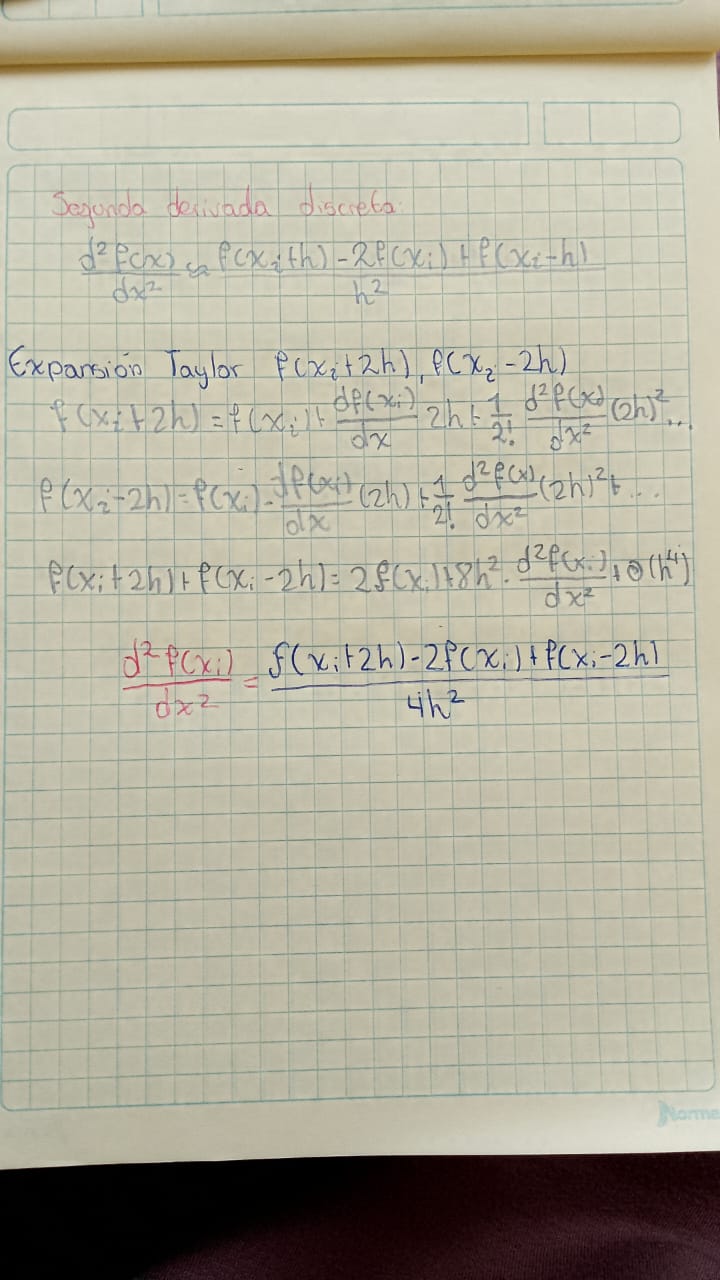 Segunda derivada discreta:
d²f(x)/dx² ≈ f(xᵢ+h)-2f(xᵢ)+f(xᵢ-h)/h²
Expansión Taylor f(xᵢ+2h), f(xᵢ-2h)
f(xᵢ+2h)=f(xᵢ)+df(xᵢ)/dx 2h+1/2! d²f(x)/dx² (2h)²...
f(xᵢ-2h)=f(xᵢ)-df(xᵢ)/dx (2h)+1/2! d²f(x)/dx² (2h)²+...
f(xᵢ+2h)+f(xᵢ-2h)=2f(xᵢ)+8h²·d²f(xᵢ)/dx²+O(h⁴)
d²f(xᵢ)/dx² = f(xᵢ+2h)-2f(xᵢ)+f(xᵢ-2h)/4h²
Norma